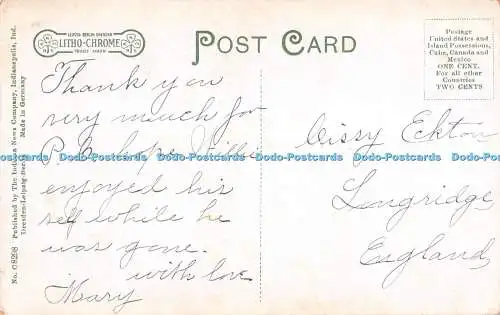 LITHO-CHROME
TRADE MARK
POST CARD
Postage
United States and
Island Possessions,
Cuba, Canada and
Mexico
ONE CENT.
For all other
Countries
TWO CENTS
No. O 8298 Published by The Indiana News Company, Indianapolis, Ind.
Dresden-Leipzig-Berlin
Made in Germany
Thank you
very much for
P. C. hope Willie
enjoyed his
self while he
was gone.
with love
Mary
Cissy Eckton
Longridge
England
Dodo-Postcards Dodo-Postcards Dodo-Postcards Dodo-Postcards Dodo-Postcards